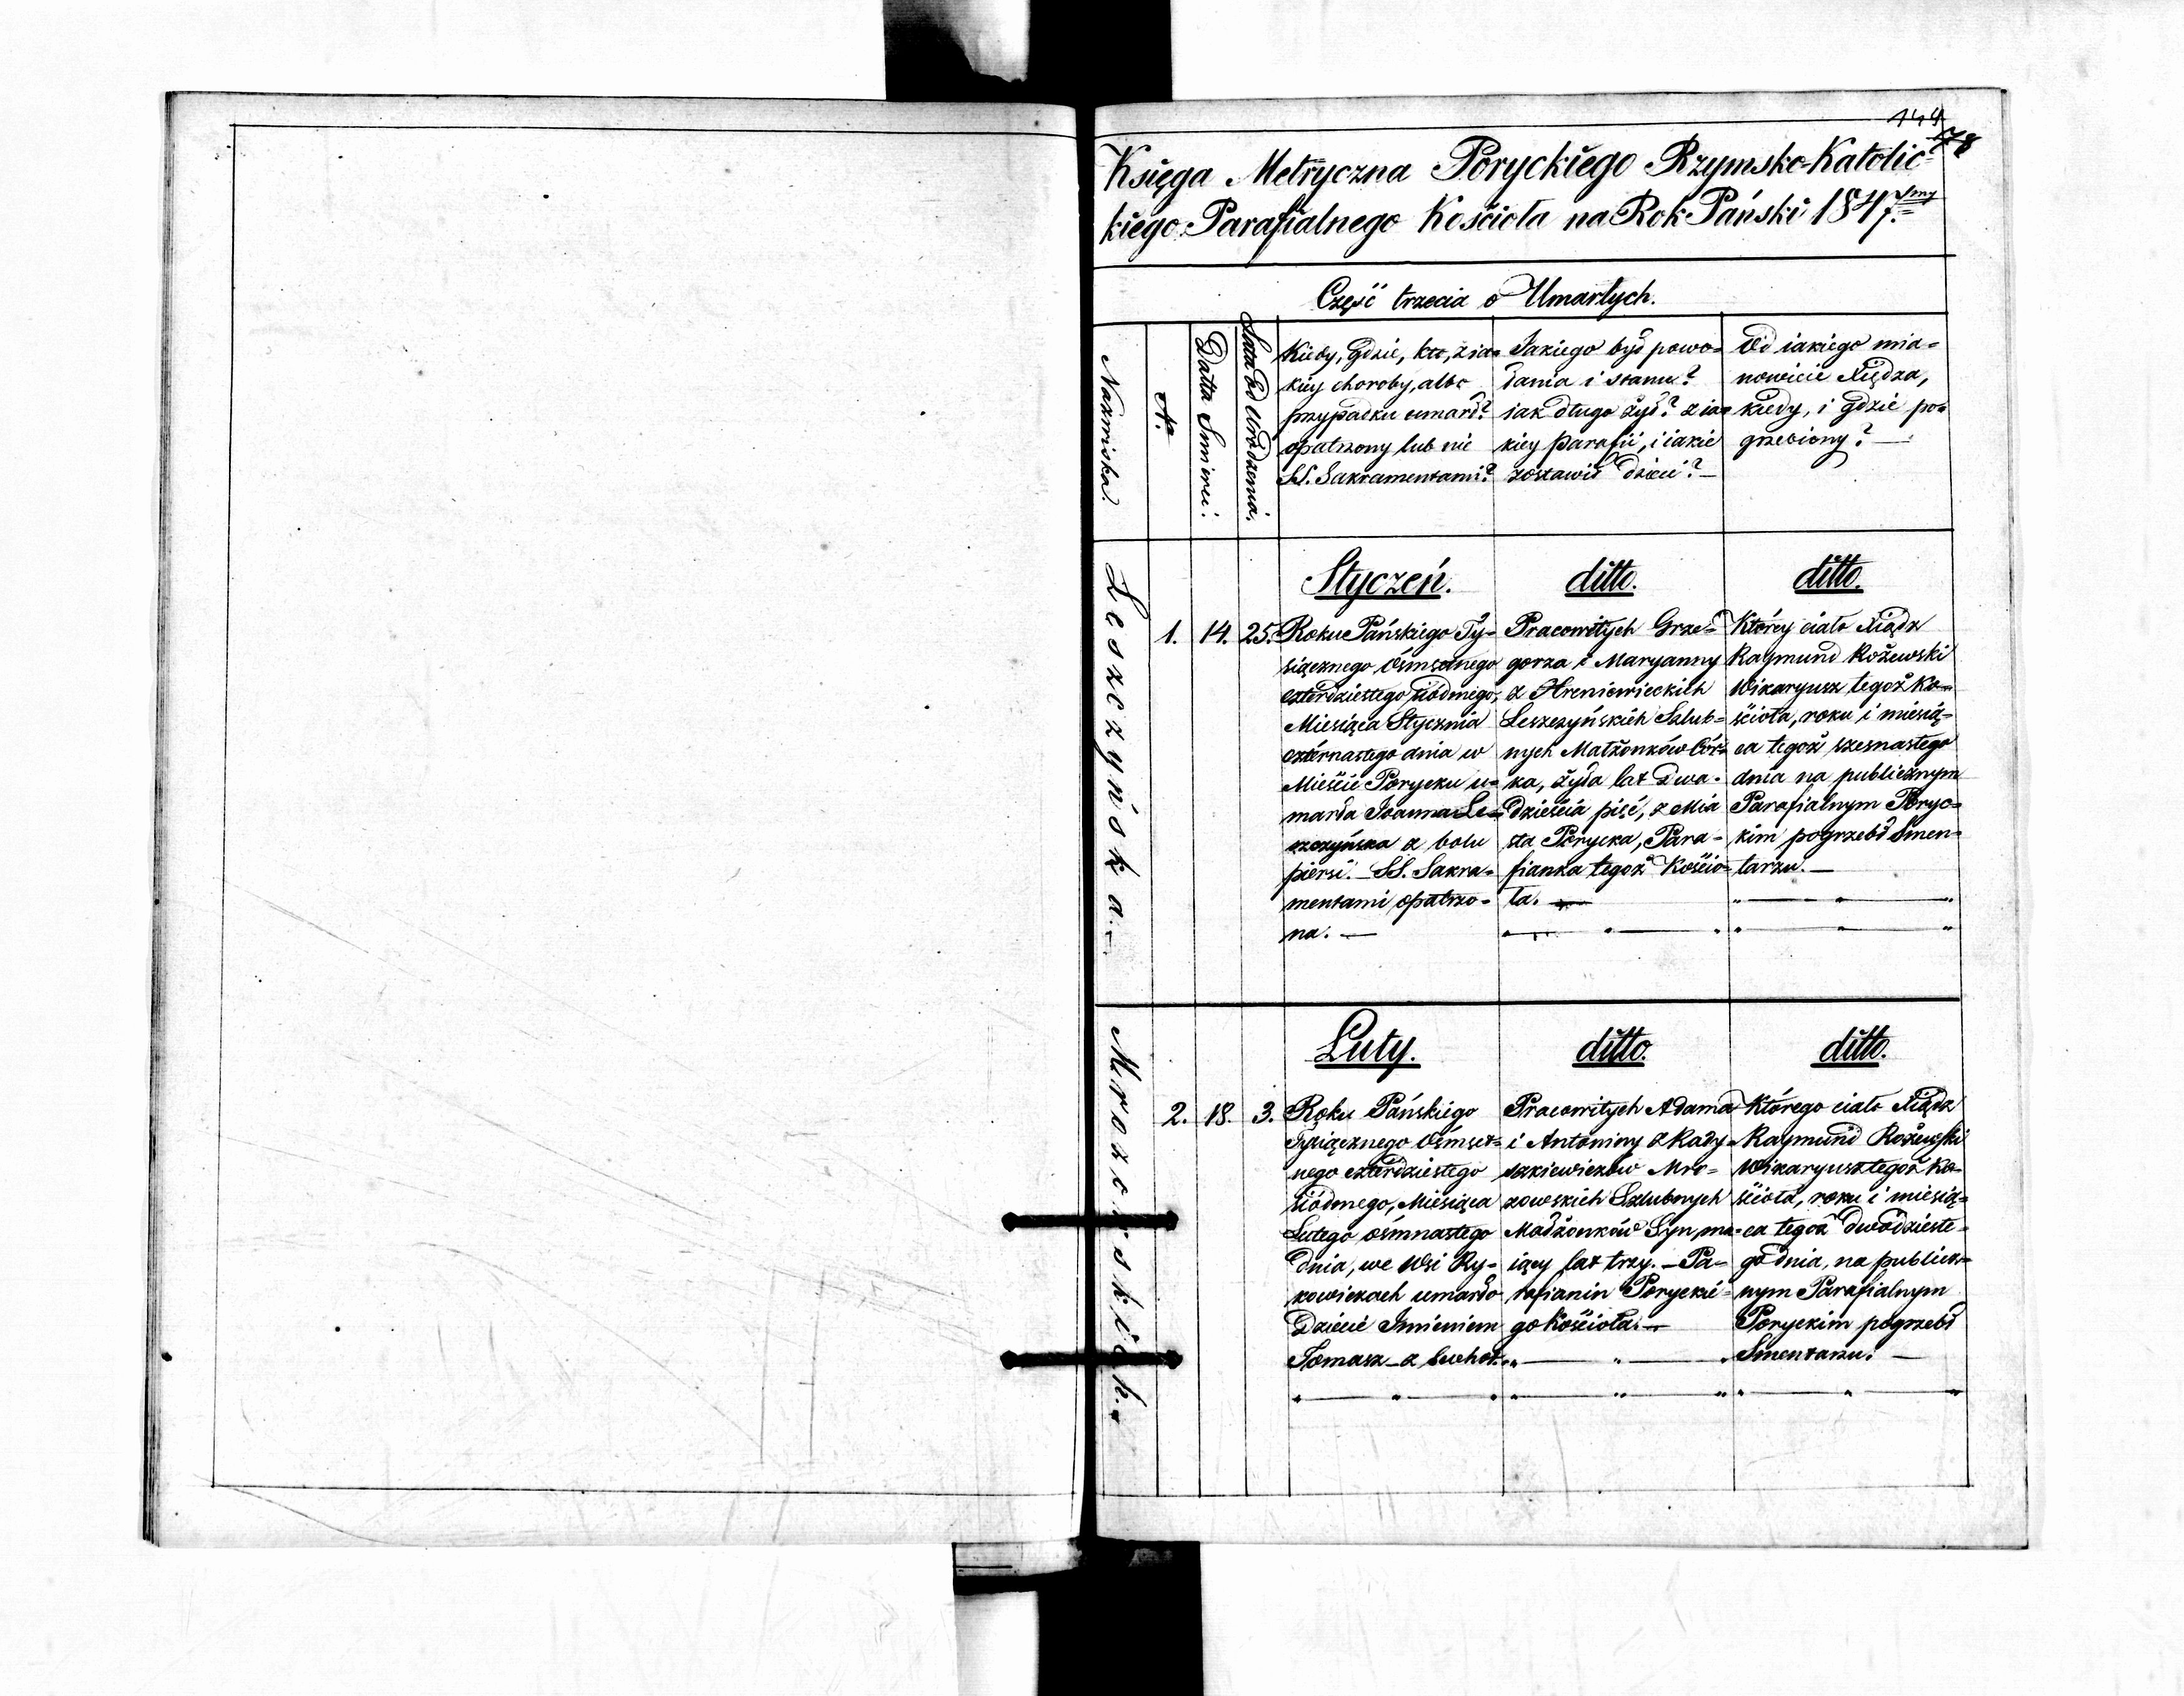 149
78
Księga Metryczna Poryckiego Rzymsko-Katolic-
kiego Parafialnego Kościoła na Rok Pański 1847my
Część trzecia o Umarłych.
Nazwiska.
N.
Datta Śmierci.
Lata Od Urodzenia.
Kiedy, gdzie, kto, z ia-
kiey choroby, albo
przypadku umarł?
opatrzony lub nie
SS. Sakramentami?
Jakiego był powo-
łania i stanu?
iak długo żył? z ia-
kiey parafii, i iakie
zostawił dzieci?—
Od iakiego mia-
nowicie Xiędza,
kiedy, i gdzie po-
grzebiony?—
Leszczyńska.—
1. 14. 25.
Styczeń.
Roku Pańskiego Ty-
siącznego Ośmsetnego
czterdziestego siódmego,
Miesiąca Stycznia
czternastego dnia w
Mieście Porycku u-
marła Joanna Le-
szczyńska z bolu
piersi.— SS. Sakra-
mentami opatrzo-
na.—
ditto.
Pracowitych Grze-
gorza i Maryanny
z Hreniewieckich
Leszczyńskich Szlub-
nych Małżonków Cór-
ka, żyła lat Dwa-
dzieścia pięć, z Mia
sta Porycka, Para-
fianka tegoż Kościo-
ła.—
ditto.
Którey ciało Xiądz
Raymund Rożewski
Wikaryusz tegoż Ko-
ścioła, roku i miesią-
ca tegoż szesnastego
dnia na publicznym
Parafialnym Poryc-
kim pogrzebł Smen-
tarzu.—
Mrozowskich.
2. 18. 3.
Luty.
Roku Pańskiego
Tysiącznego Ośmset-
nego czterdziestego
siódmego, Miesiąca
Lutego ośmnastego
dnia, we Wsi Ry-
kowiczach umarło
Dziecie Imieniem
Tomasz z suchot.
ditto.
Pracowitych Adama
i Antoniny z Rady-
szkiewiczów Mro-
zowskich Szlubnych
Małżonków Syn, ma-
iący lat trzy.— Pa-
rafianin Poryckie-
go Kościoła.—
ditto.
Którego ciało Xiądz
Raymund Rożewski
Wikaryusz tegoż Ko-
ścioła, roku i miesią-
ca tegoż dwódzieste-
go dnia, na publicz-
nym Parafialnym
Poryckim pogrzebł
Smentarzu.—